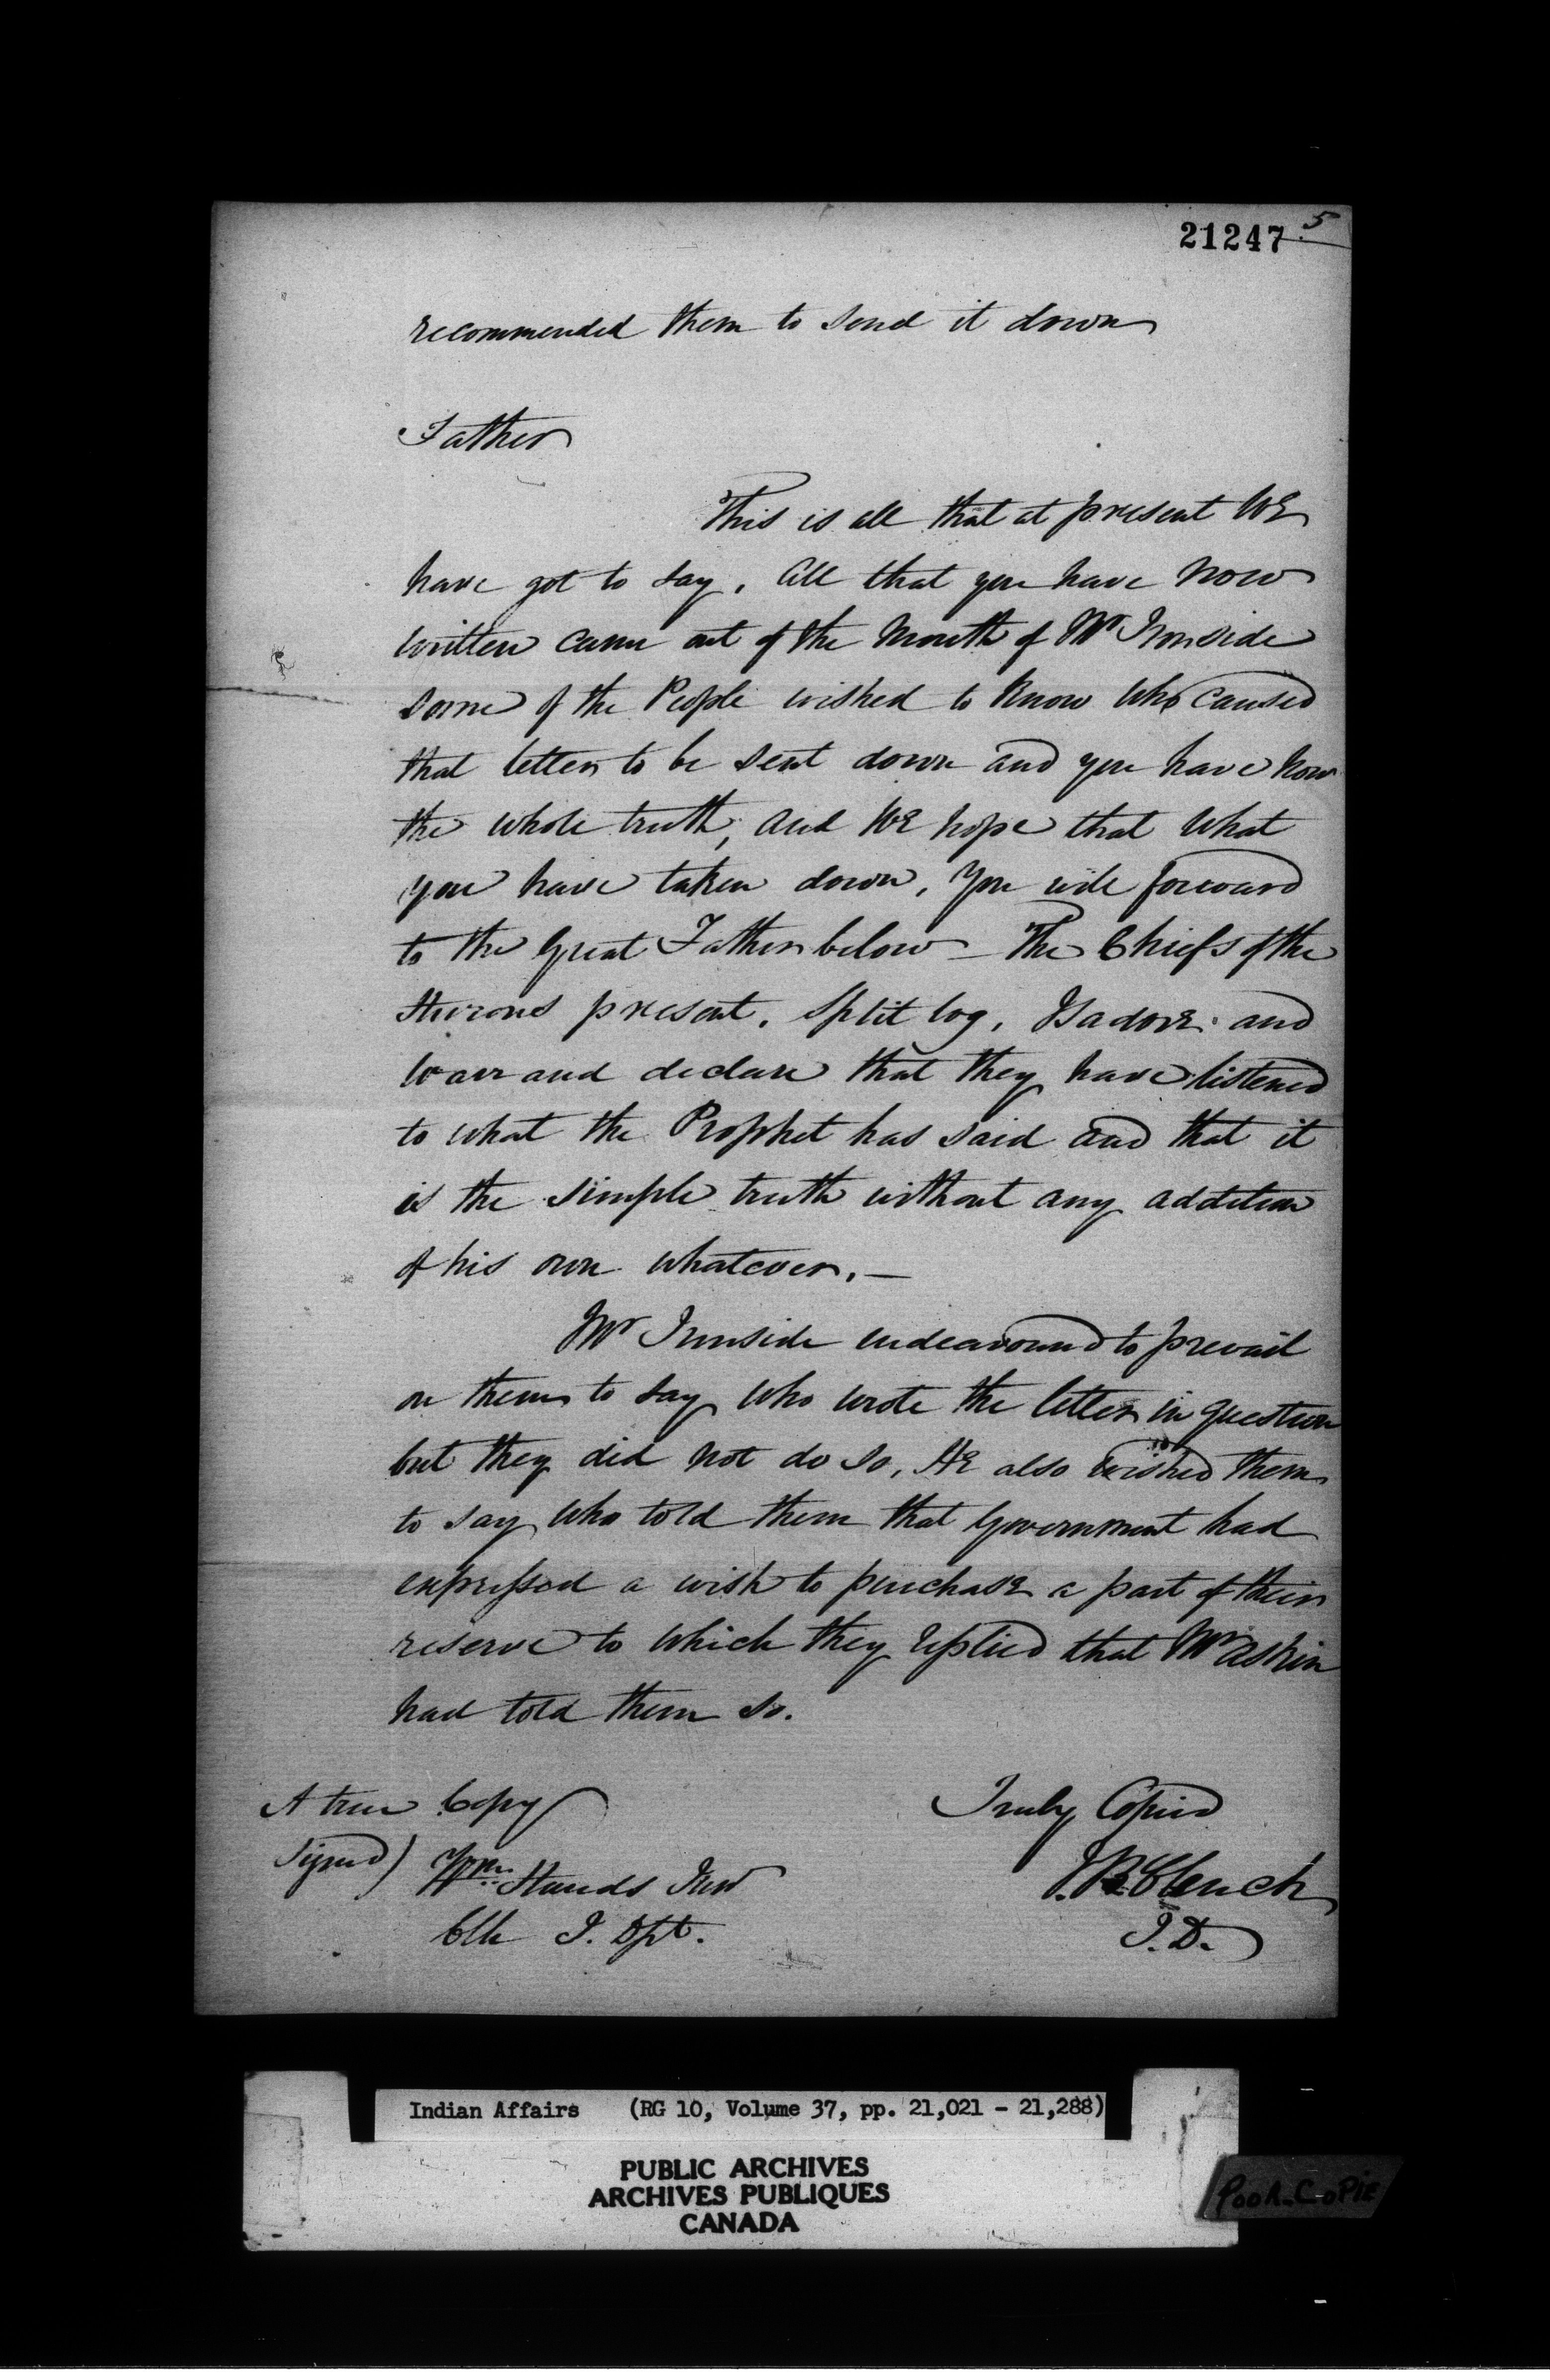 21247 5
recommended them to send it down
Father
This is all that at present We
have got to say. All that you have now
written came out of the Mouth of Mr Ironside
some of the People wished to know who caused
that letter to be sent down and you have now
the whole truth, and We hope that what
you have taken down, You will forward
to the Great Father below – The Chiefs of the
Hurons present. Split log, Isadore and
Warr and declare that they have listened
to what the Prophet has said and that it
is the simple truth without any addition
of his own whatever. –
Mr Ironside endeavoured to prevail
on them to say who wrote the letter in question
but they did not do so, He also wished them
to say who told them that Government had
expressed a wish to purchase a part of their
reserve to which they replied that Mr Askin
had told them so.
A true Copy
Signed)
Wm. Hands Jun
Clk I. Dpt.
Truly Copied
J.B. Clench
I.D.
Indian Affairs (RG 10, Volume 37, pp. 21,021 - 21,288)
PUBLIC ARCHIVES
ARCHIVES PUBLIQUES
CANADA
POOR COPIE